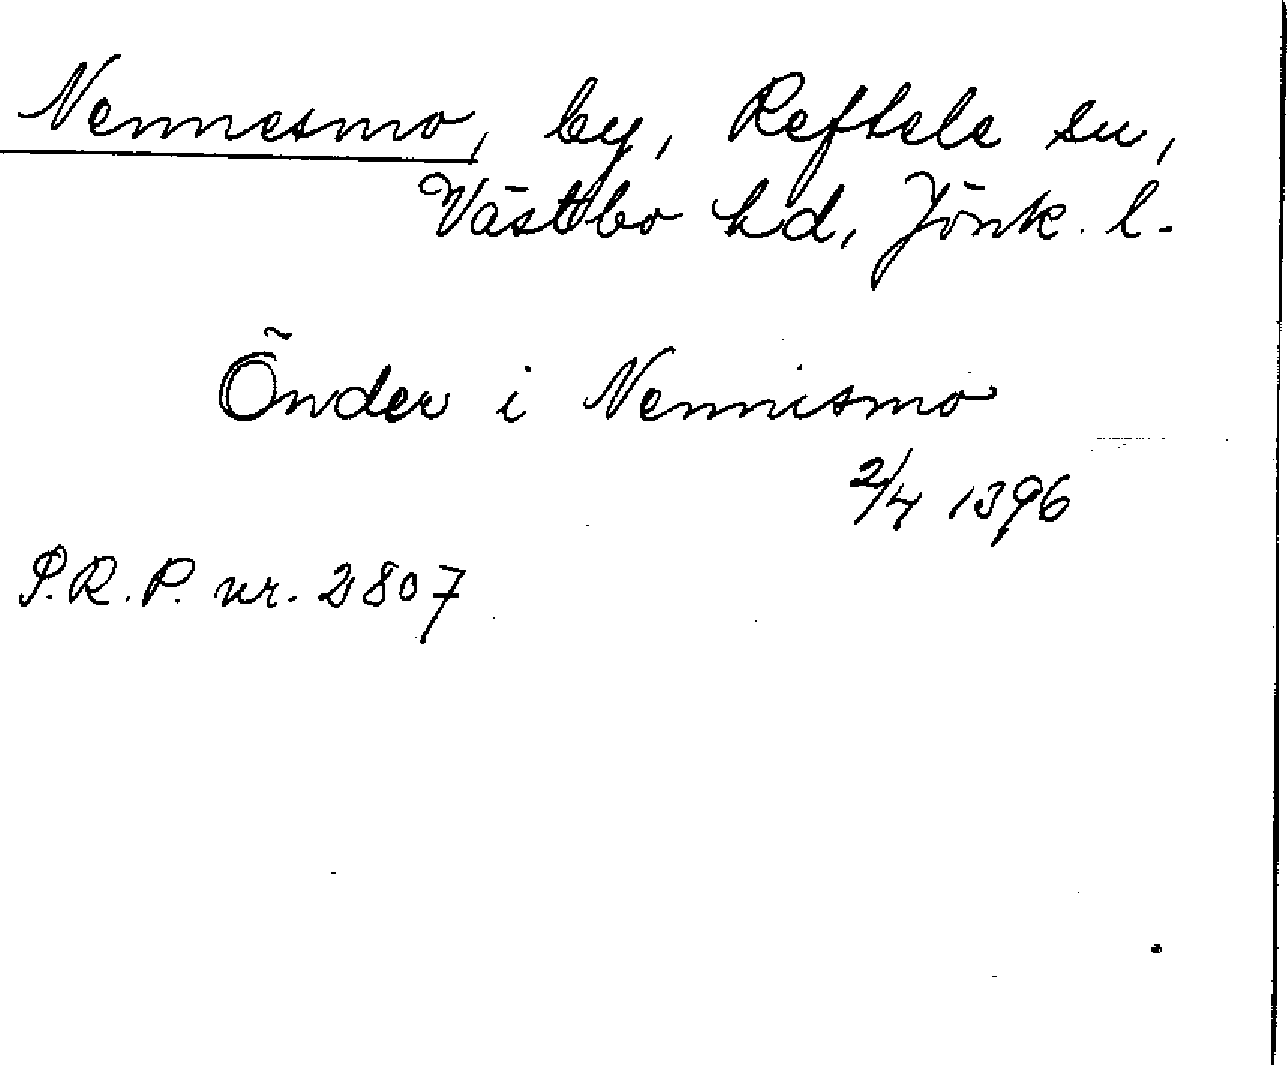 Nennesmo, by, Reftele sn,
Västbo hd, Jönk. l.
Önder i Nennismo
2/4 1396
S.R.P. nr. 2807